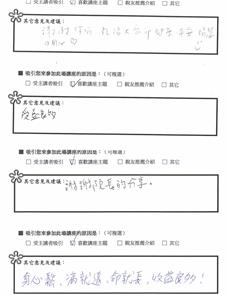 □ 受主講者吸引 ☑ 喜歡講座主題 □ 親友推薦介紹 □ 其它
其它意見及建議:
■ 吸引您來參加此場講座的原因是:(可複選)
□ 受主講者吸引 ☑ 喜歡講座主題 □ 親友推薦介紹 □ 其它
其它意見及建議:
受益良多
■ 吸引您來參加此場講座的原因是:(可複選)
□ 受主講者吸引 ☑ 喜歡講座主題 □ 親友推薦介紹 □ 其它
其它意見及建議:
謝謝院長的分享。
■ 吸引您來參加此場講座的原因是:(可複選)
□ 受主講者吸引 ☑ 喜歡講座主題 □ 親友推薦介紹 □ 其它
其它意見及建議:
身心鬆、滿就退、命就長、收益良多!